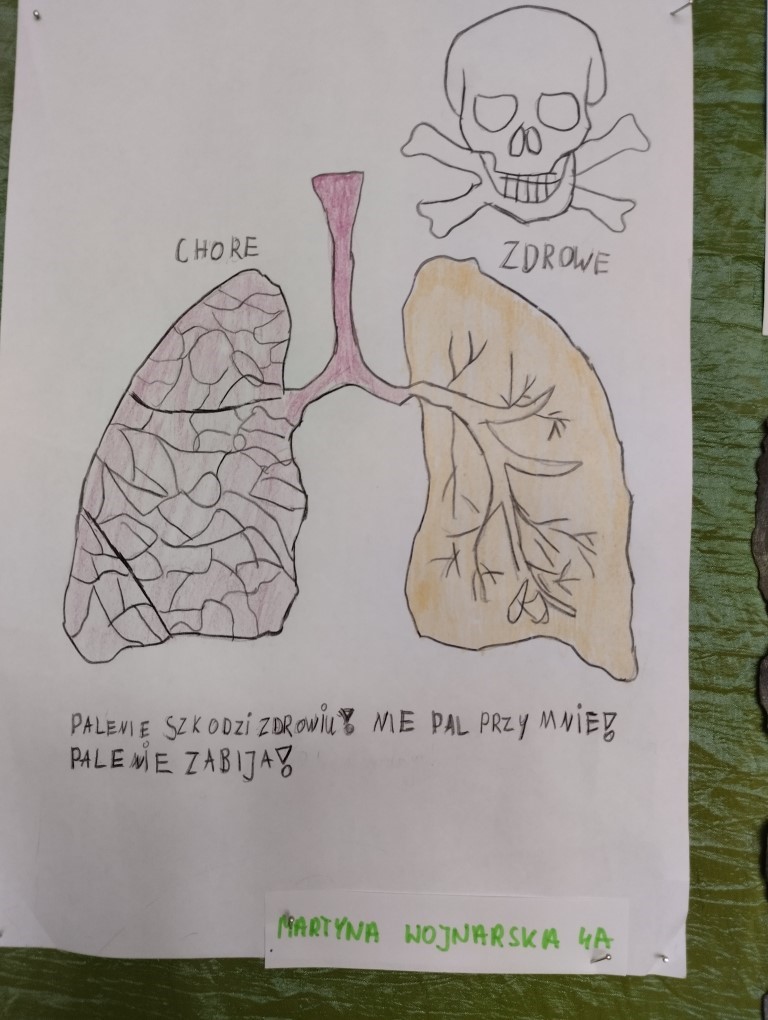 CHORE
ZDROWE
PALENIE SZKODZI ZDROWIU! NIE PAL PRZY MNIE!
PALENIE ZABIJA!
MARTYNA WOJNARSKA 4A